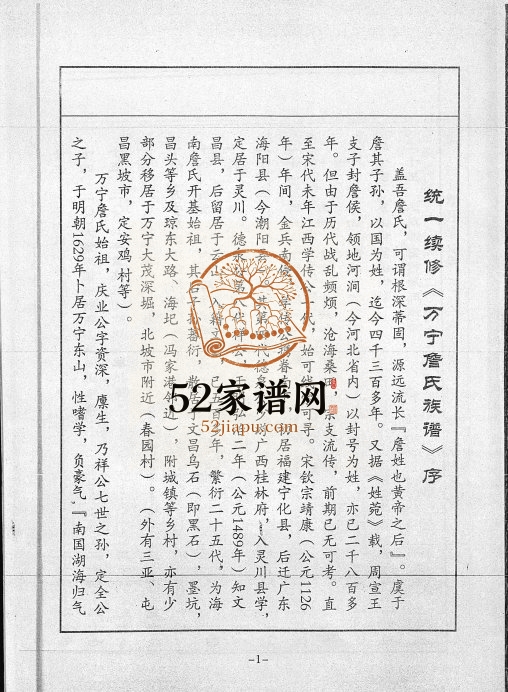 统一续修《万宁詹氏族谱》序
盖吾詹氏，可谓根深蒂固，源远流长『詹姓也黄帝之后』。虞于
詹其子孙，以国为姓，迄今四千三百多年。又据《姓苑》载，周宣王
支子封詹侯，领地河涧（今河北省内）以封号为姓，亦已二千八百多
年。但由于历代战乱频烦，沧海桑田，宗支流传，前期已无可考。直
至宋代末年江西学传公 代，始可 可寻。宋钦宗靖康（公元1126
年）年间，金兵南 居福建宁化县，后迁广东
海阳县（今潮阳 广西桂林府，入灵川县学，
定居于灵川。德 二年（公元1489年）知文
昌县，后留居于云 年，繁衍二十五代，为海
南詹氏开基始祖，其 蕃衍，散 文昌乌石（即黑石），墨坑，
昌头等乡及琼东大路、海圯（冯家港 近），附城镇等乡村，亦有少
部分移居于万宁大茂深堀，北坡市附近（春园村）。（外有三亚、屯
昌黑坡市，定安鸡 村等）。
万宁詹氏始祖，庆业公字资深，廪生，乃祥公七世之孙，定全公
之子，于明朝1629年卜居万宁东山 性嗜学，负豪气，『南国湖海归气
52家谱网
52jiapu.com
-1-